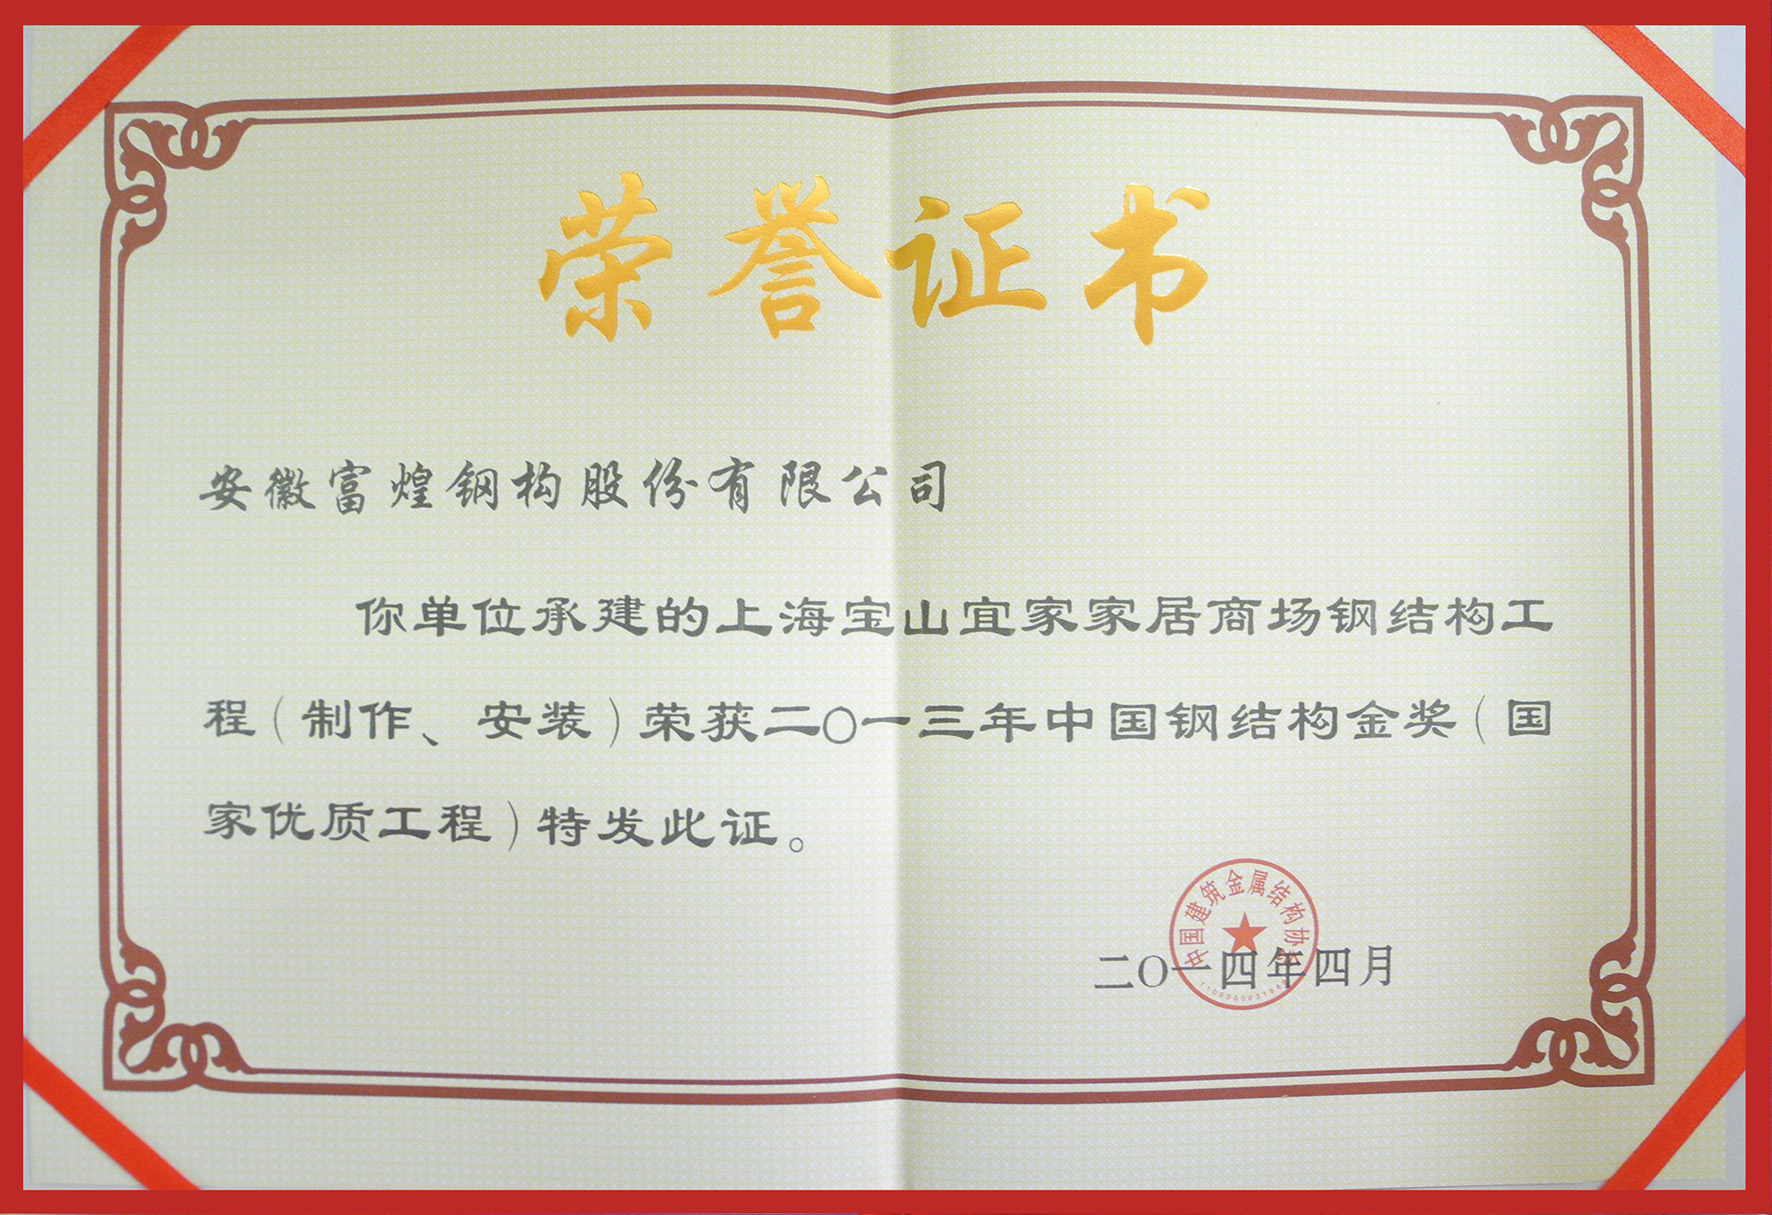 荣誉证书
安徽富煌钢构股份有限公司
你单位承建的上海宝山宜家家居商场钢结构工
程（制作、安装）荣获二〇一三年中国钢结构金奖（国
家优质工程）特发此证。
中国建筑金属结构协会
二〇一四年四月